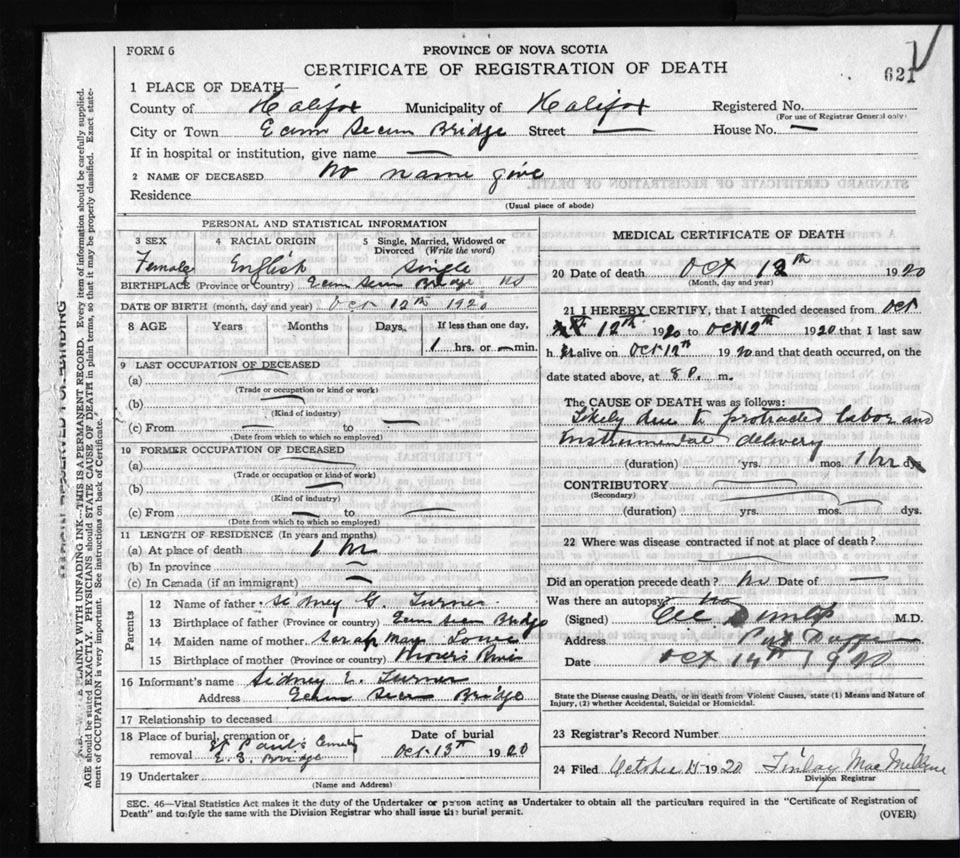 FORM 6
PROVINCE OF NOVA SCOTIA
CERTIFICATE OF REGISTRATION OF DEATH
621
1 PLACE OF DEATH—
County of Halifax Municipality of Halifax Registered No.
(For use of Registrar General only)
City or Town Ecum Secum Bridge Street — House No. —
If in hospital or institution, give name —
2 NAME OF DECEASED No name give
Residence
(Usual place of abode)
PERSONAL AND STATISTICAL INFORMATION
3 SEX 4 RACIAL ORIGIN 5 Single, Married, Widowed or Divorced (Write the word)
Female English Single
BIRTHPLACE (Province or Country) Ecum Secum Bridge NS
DATE OF BIRTH (month, day and year) Oct 12th 1920
8 AGE Years Months Days, If less than one day,
1 hrs. or — min.
9 LAST OCCUPATION OF DECEASED
(a)
(Trade or occupation or kind or work)
(b)
(Kind of industry)
(c) From to
(Date from which to which so employed)
10 FORMER OCCUPATION OF DECEASED
(a)
(Trade or occupation or kind of work)
(b)
(Kind of industry)
(c) From to
(Date from which to which so employed)
11 LENGTH OF RESIDENCE (In years and months)
(a) At place of death 1 hr
(b) In province —
(c) In Canada (if an immigrant) —
Parents
12 Name of father Sidney G. Turner
13 Birthplace of father (Province or country) Ecum Secum Bridge
14 Maiden name of mother Sarah May Lowe
15 Birthplace of mother (Province or country)
16 Informant's name Sidney E. Turner
Address Ecum Secum Bridge
17 Relationship to deceased
18 Place of burial, cremation or removal St Paul's Cemetry E. S. Bridge
Date of burial Oct. 13th 1920
19 Undertaker
(Name and Address)
MEDICAL CERTIFICATE OF DEATH
20 Date of death Oct 12th 1920
(Month, day and year)
21 I HEREBY CERTIFY, that I attended deceased from Oct
12th 1920 to Oct 12th 1920 that I last saw
h er alive on Oct 12th 1920 and that death occurred, on the
date stated above, at 8 P. m.
The CAUSE OF DEATH was as follows:
Likely due to protracted labor and
instrumental delivery
(duration) yrs. mos. 1 hr dys
CONTRIBUTORY
(Secondary)
(duration) yrs. mos. dys.
22 Where was disease contracted if not at place of death?
Did an operation precede death? No Date of —
Was there an autopsy? No
(Signed) Dunlop M.D.
Address
Date Oct 14th 1920
State the Disease causing Death, or in death from Violent Causes, state (1) Means and Nature of
Injury, (2) whether Accidental, Suicidal or Homicidal.
23 Registrar's Record Number
24 Filed October 15 1920 Finlay Mac
Division Registrar
SEC. 46—Vital Statistics Act makes it the duty of the Undertaker or person acting as Undertaker to obtain all the particulars required in the "Certificate of Registration of
Death" and to fyle the same with the Division Registrar who shall issue the burial permit. (OVER)
PLAINLY WITH UNFADING INK—THIS IS A PERMANENT RECORD. Every item of information should be carefully supplied.
AGE should be stated EXACTLY. PHYSICIANS should STATE CAUSE OF DEATH in plain terms, so that it may be properly classified. Exact state-
ment of OCCUPATION is very important. See instructions on back of Certificate.